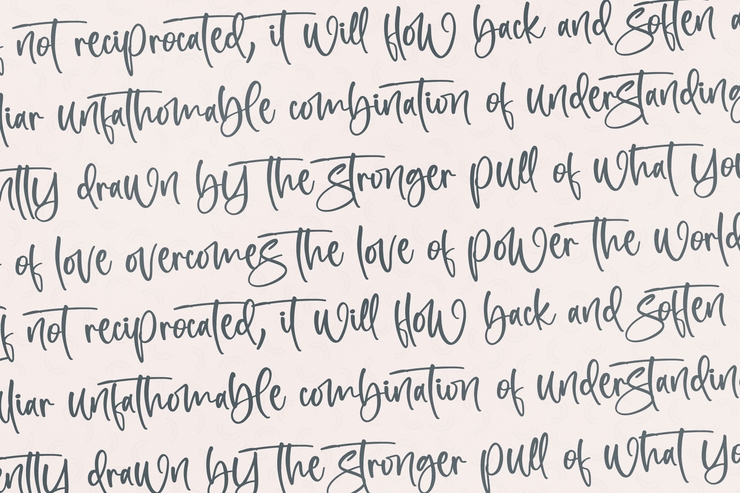 f not reciprocated, it will flow back and soften a
liar unfathomable combination of understanding
ntly drawn by the stronger pull of what you
of love overcomes the love of power the world
If not reciprocated, it will flow back and soften
uliar unfathomable combination of understanding
ently drawn by the stronger pull of what yo